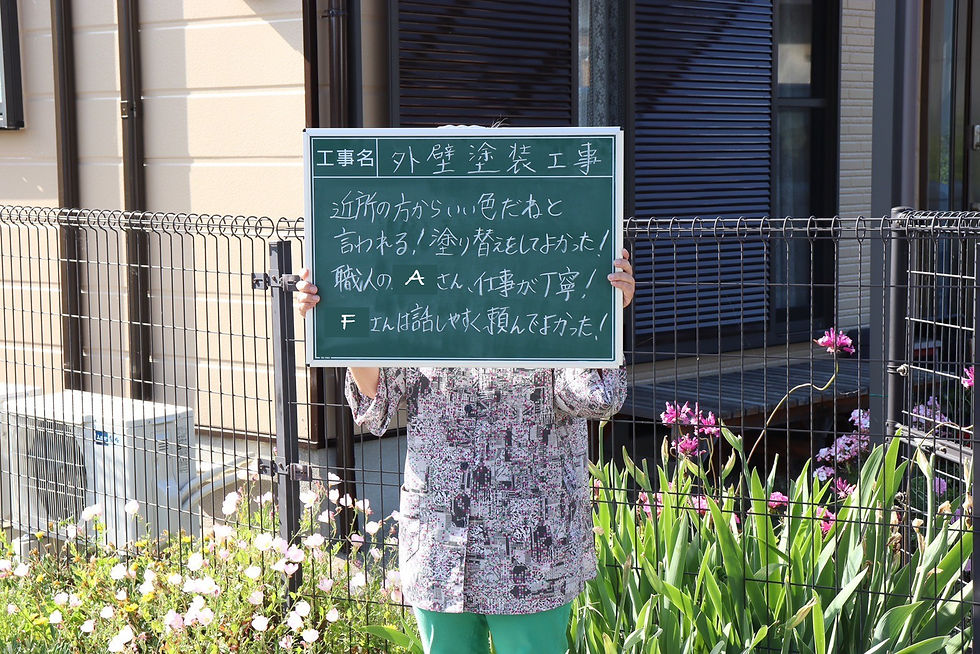 工事名 外壁塗装工事
近所の方からいい色だねと
言われる!塗り替えをしてよかった!
職人の A さん、仕事が丁寧!
F さんは話しやすく頼んでよかった!